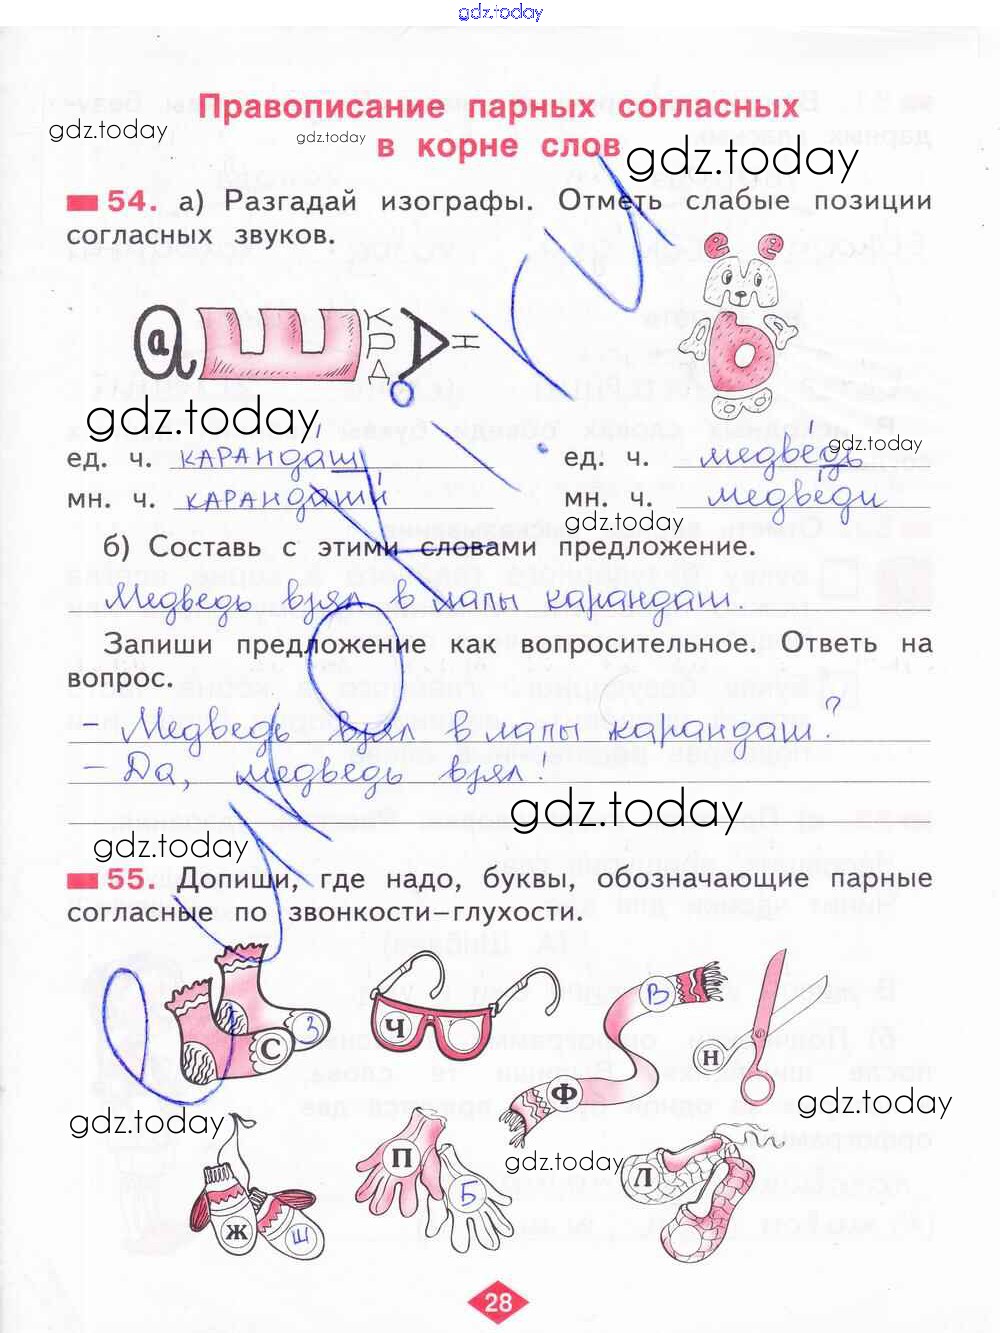 gdz.today
Правописание парных согласных
gdz.today
gdz.today
в корне слов
gdz.today
54. а) Разгадай изографы. Отметь слабые позиции
согласных звуков.
gdz.today
gdz.today
ед. ч. карандаш
ед. ч. медведь
мн. ч. карандаши
мн. ч. медведи
gdz.today
б) Составь с этими словами предложение.
Медведь взял в лапы карандаш.
Запиши предложение как вопросительное. Ответь на
вопрос.
- Медведь взял в лапы карандаш?
- Да, медведь взял.
gdz.today
gdz.today
55. Допиши, где надо, буквы, обозначающие парные
согласные по звонкости–глухости.
С
З
Ч
Ф
В
Н
gdz.today
gdz.today
gdz.today
Ж
Ш
П
Б
Л
28